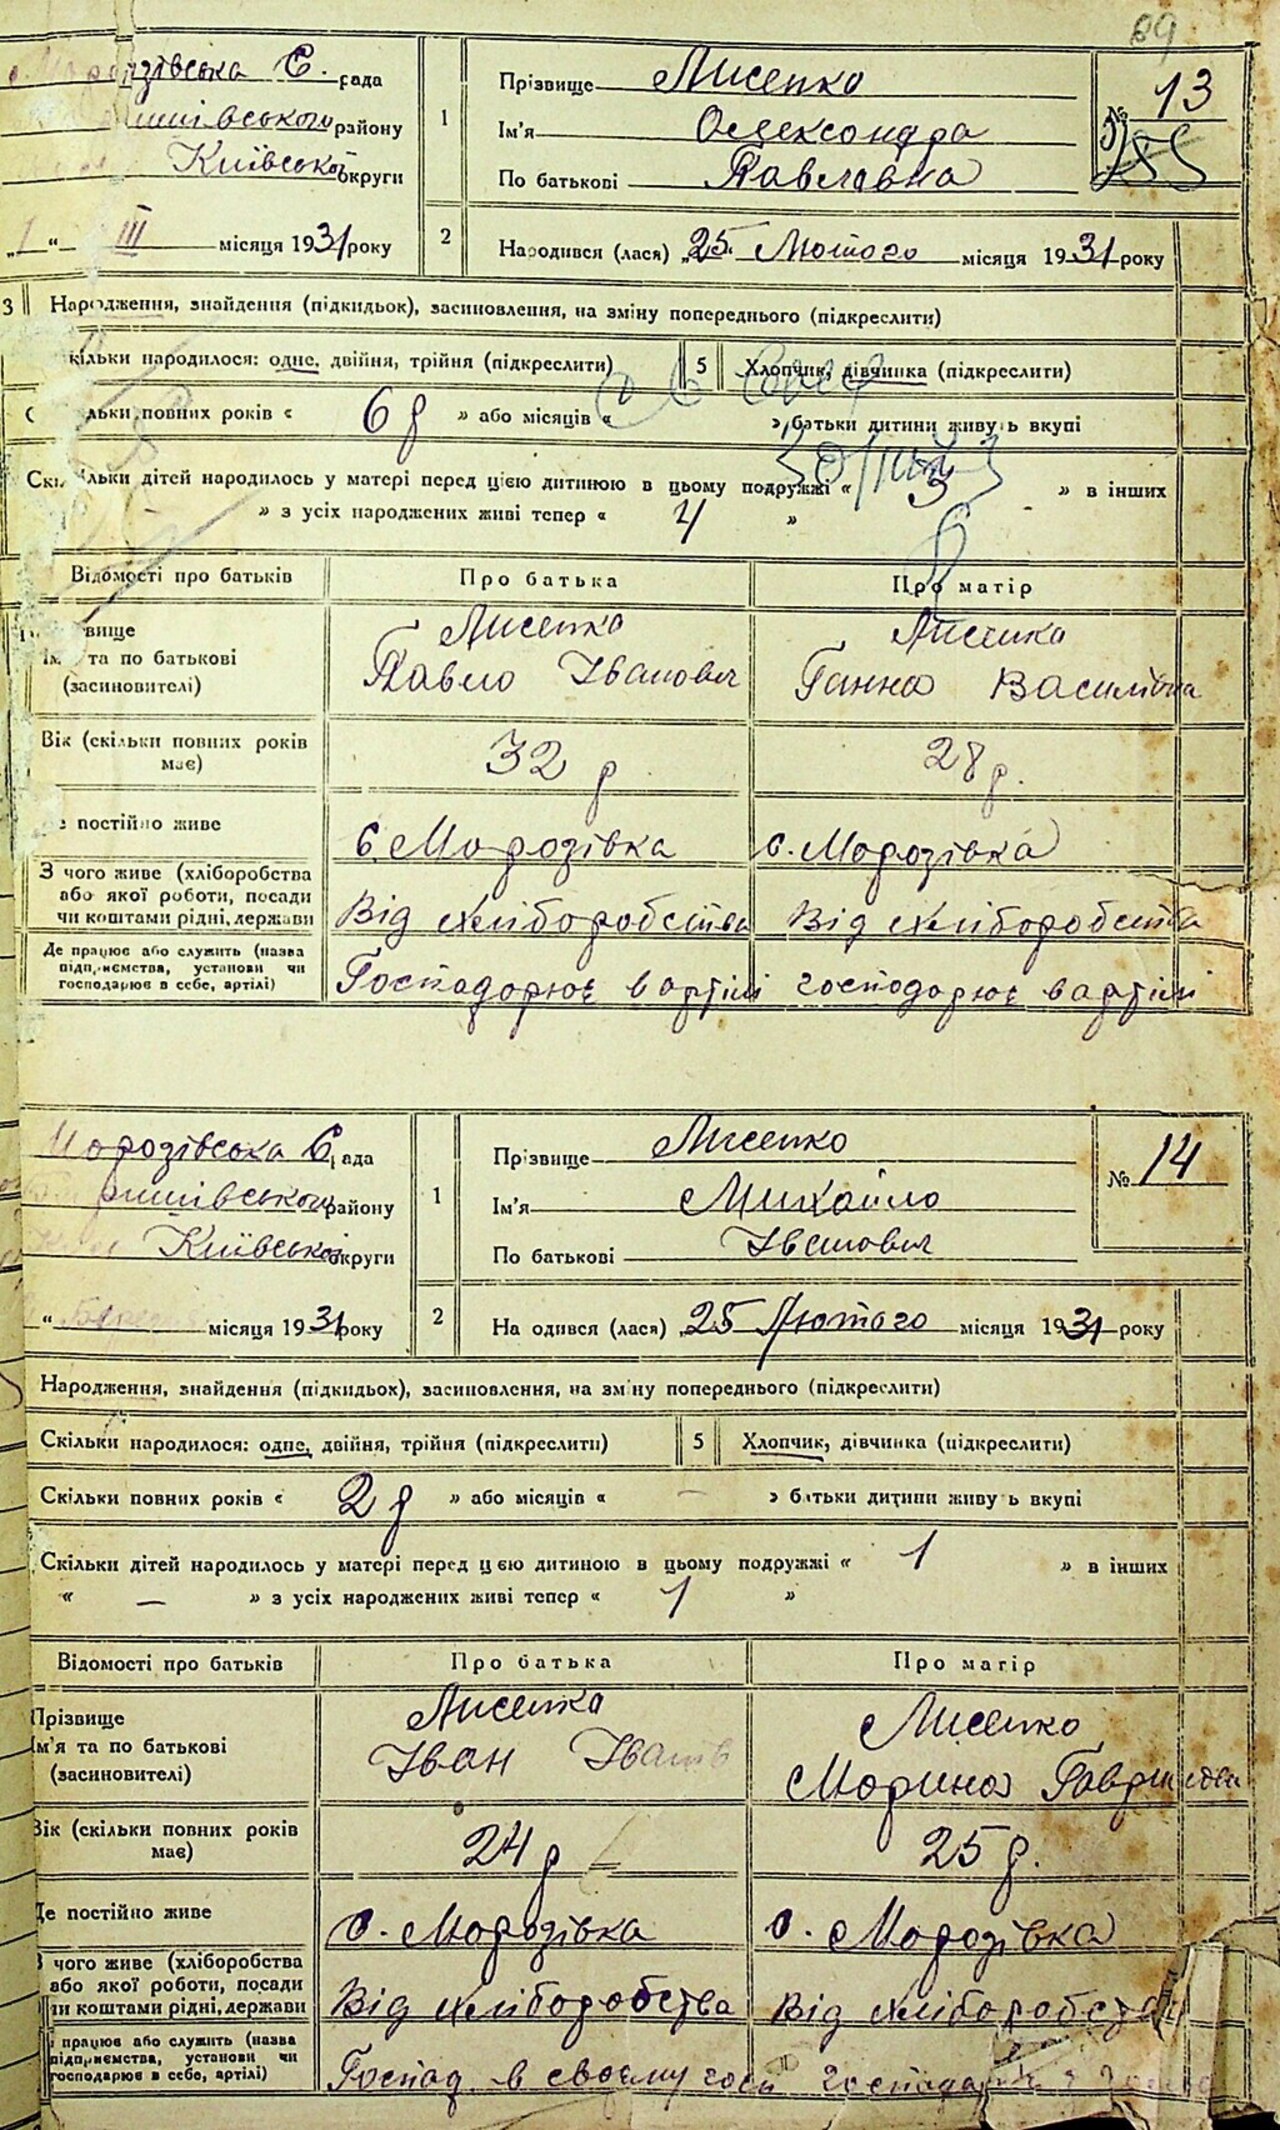 69
Морозівська С. рада
Київської округи
III місяця 1931 року
1
Прізвище Лисенко
Ім'я Олександра
По батькові Павлівна
№ 13
2
Народився (лася) „25" Лютого місяця 1931 року
3 Народження, знайдення (підкидьок), засиновлення, на зміну попереднього (підкреслити)
кільки народилося: одне, двійня, трійня (підкреслити) 5 Хлопчик, дівчинка (підкреслити)
льки повних років « 6 р » або місяців « » батьки дитини живуть вкупі
Скільки дітей народилось у матері перед цією дитиною в цьому подружжі « 5 » в інших
» з усіх народжених живі тепер « 4 »
Відомості про батьків Про батька Про матір
вище
Ім' та по батькові
(засиновителі)
Лисенко
Павло Іванович
Лисенко
Ганна Василівна
Вік (скільки повних років
має)
32 р
28 р.
е постійно живе
с. Морозівка
с. Морозівка
З чого живе (хліборобства
або якої роботи, посади
чи коштами рідні, держави
Від хліборобства
Від хліборобства
Де працює або служить (назва
підприємства, установи чи
господарює в себе, артілі)
Господорює в артілі
господорює в артілі
Морозівська С. рада
району
Київської округи
" місяця 1931 року
1
Прізвище Лисенко
Ім'я Михайло
По батькові Іванович
№ 14
2
На одився (лася) „25 Лютого місяця 1931 року
Народження, знайдення (підкидьок), засиновлення, на зміну попереднього (підкреслити)
Скільки народилося: одне, двійня, трійня (підкреслити) 5 Хлопчик, дівчинка (підкреслити)
Скільки повних років « 2 р » або місяців « — » батьки дитини живуть вкупі
Скільки дітей народилось у матері перед цією дитиною в цьому подружжі « 1 » в інших
« — » з усіх народжених живі тепер « 1 »
Відомості про батьків Про батька Про матір
Прізвище
Ім'я та по батькові
(засиновителі)
Лисенко
Іван
Лисенко
Морина
Вік (скільки повних років
має)
24 р
25 р.
Де постійно живе
с. Морозівка
с. Морозівка
З чого живе (хліборобства
або якої роботи, посади
чи коштами рідні, держави
Від хліборобства
Від хліборобства
працює або служить (назва
підприємства, установи чи
господарює в себе, артілі)
Господ. в своєму